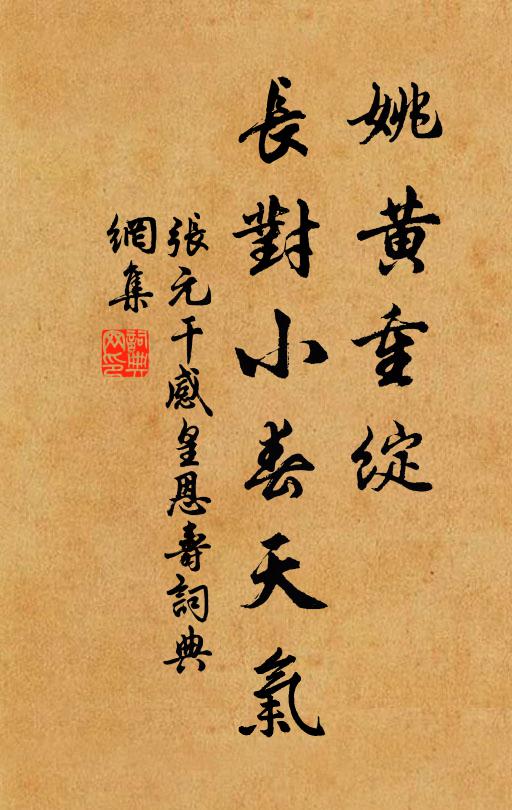 姚黃重綻
長對小春天氣
張元干感皇恩壽詞典
網集
詞典
网印